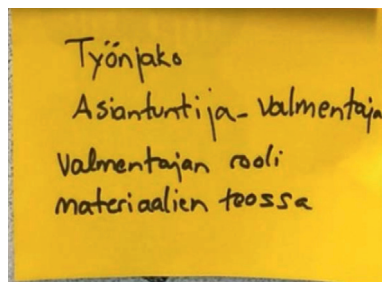 Työnjako
Asiantuntija-valmentaja
valmentajan rooli
materiaalien teossa